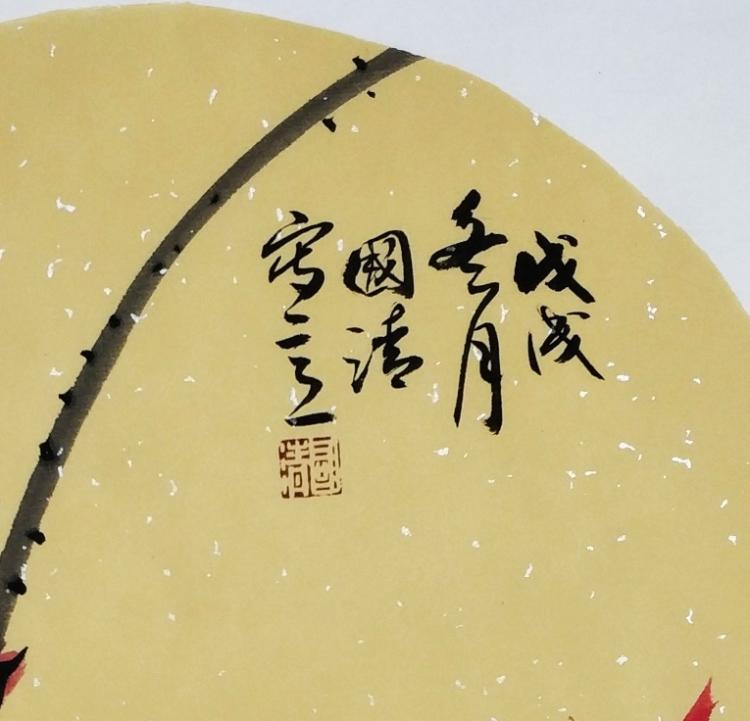 戊戌
冬月
國清
写
國清